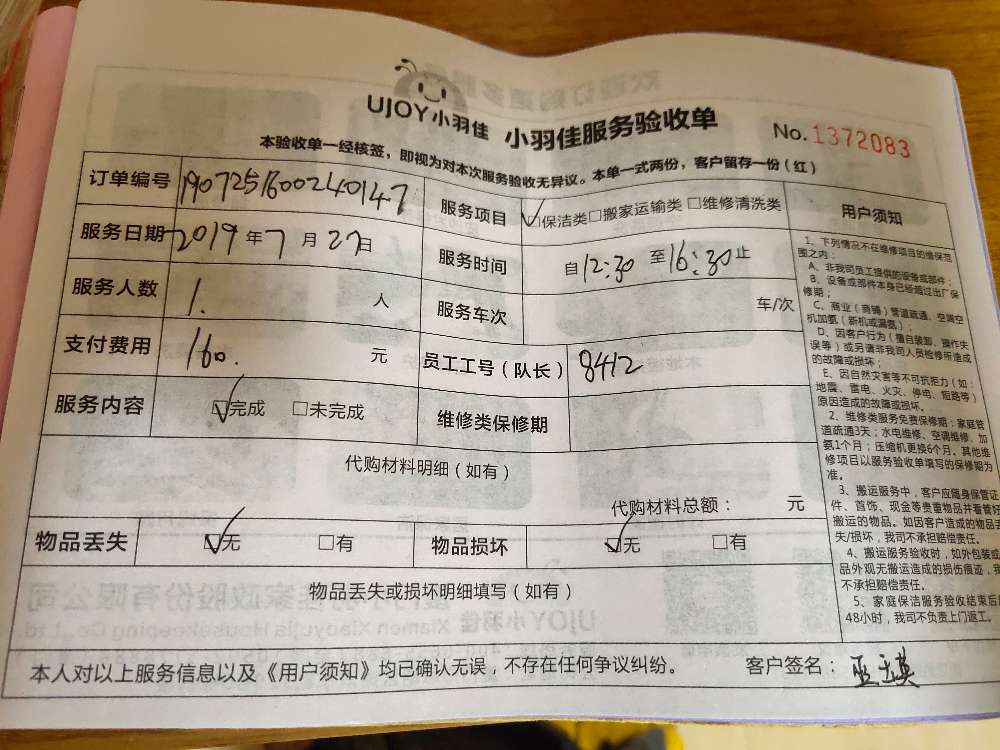 UJOY小羽佳 小羽佳服务验收单 No.1372083
本验收单一经核签，即视为对本次服务验收无异议。本单一式两份，客户留存一份（红）
订单编号 1907251600240147 服务项目 ☑保洁类□搬家运输类□维修清洗类
服务日期 2019年7月27日 服务时间 自12:30至16:30止
服务人数 1. 人 服务车次 车/次
支付费用 160. 元 员工工号（队长） 8412
服务内容 ☑完成 □未完成 维修类保修期
代购材料明细（如有）
代购材料总额： 元
物品丢失 ☑无 □有 物品损坏 ☑无 □有
物品丢失或损坏明细填写（如有）
用户须知
1、下列情况不在维修项目的维保范
围之内：
A、非我司员工提供的设备或部件；
B、设备或部件本身已经超过出厂保
修期；
C、商业（商铺）管道疏通、空调空
机加氨（新机或漏氨）；
D、因客户行为（擅自装卸、操作失
误等）或另请非我司人员检修所造成
的故障或损坏；
E、因自然灾害等不可抗拒力（如：
地震、雷电、火灾、停电、短路等）
原因造成的故障或损坏。
2、维修类服务免费保修期：家庭管
道疏通3天；水电维修、空调维修、加
氨1个月；压缩机更换6个月。其他维
修项目以服务验收单填写的保修期为
准。
3、搬运服务中，客户应随身保管证
件、首饰、现金等贵重物品并看管好
搬运的物品。如因客户造成的物品丢
失/损坏，我司不承担赔偿责任。
4、搬运服务验收时，如外包装或
品外观无搬运造成的损伤痕迹，我
不承担赔偿责任。
5、家庭保洁服务验收结束后超
48小时，我司不负责上门返工。
本人对以上服务信息以及《用户须知》均已确认无误，不存在任何争议纠纷。 客户签名：